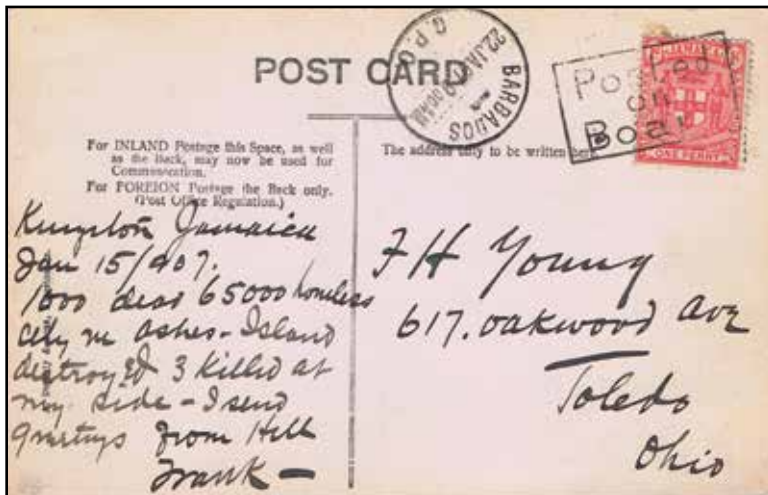 POST CARD
BARBADOS
G.P.O.
22 JA
Posted
on
Boat
JAMAICA
ONE PENNY
For INLAND Postage this Space, as well
as the Back, may now be used for
Communication.
For FOREIGN Postage the Back only.
(Post Office Regulation.)
The address only to be written here
Kingston Jamaica
Jan 15/907.
1000 dead 65000 homeless
city in ashes - Island
destroyed 3 killed at
my side - I send
greetings from Hell
Frank -
F H Young
617. oakwood Ave
Toledo
Ohio